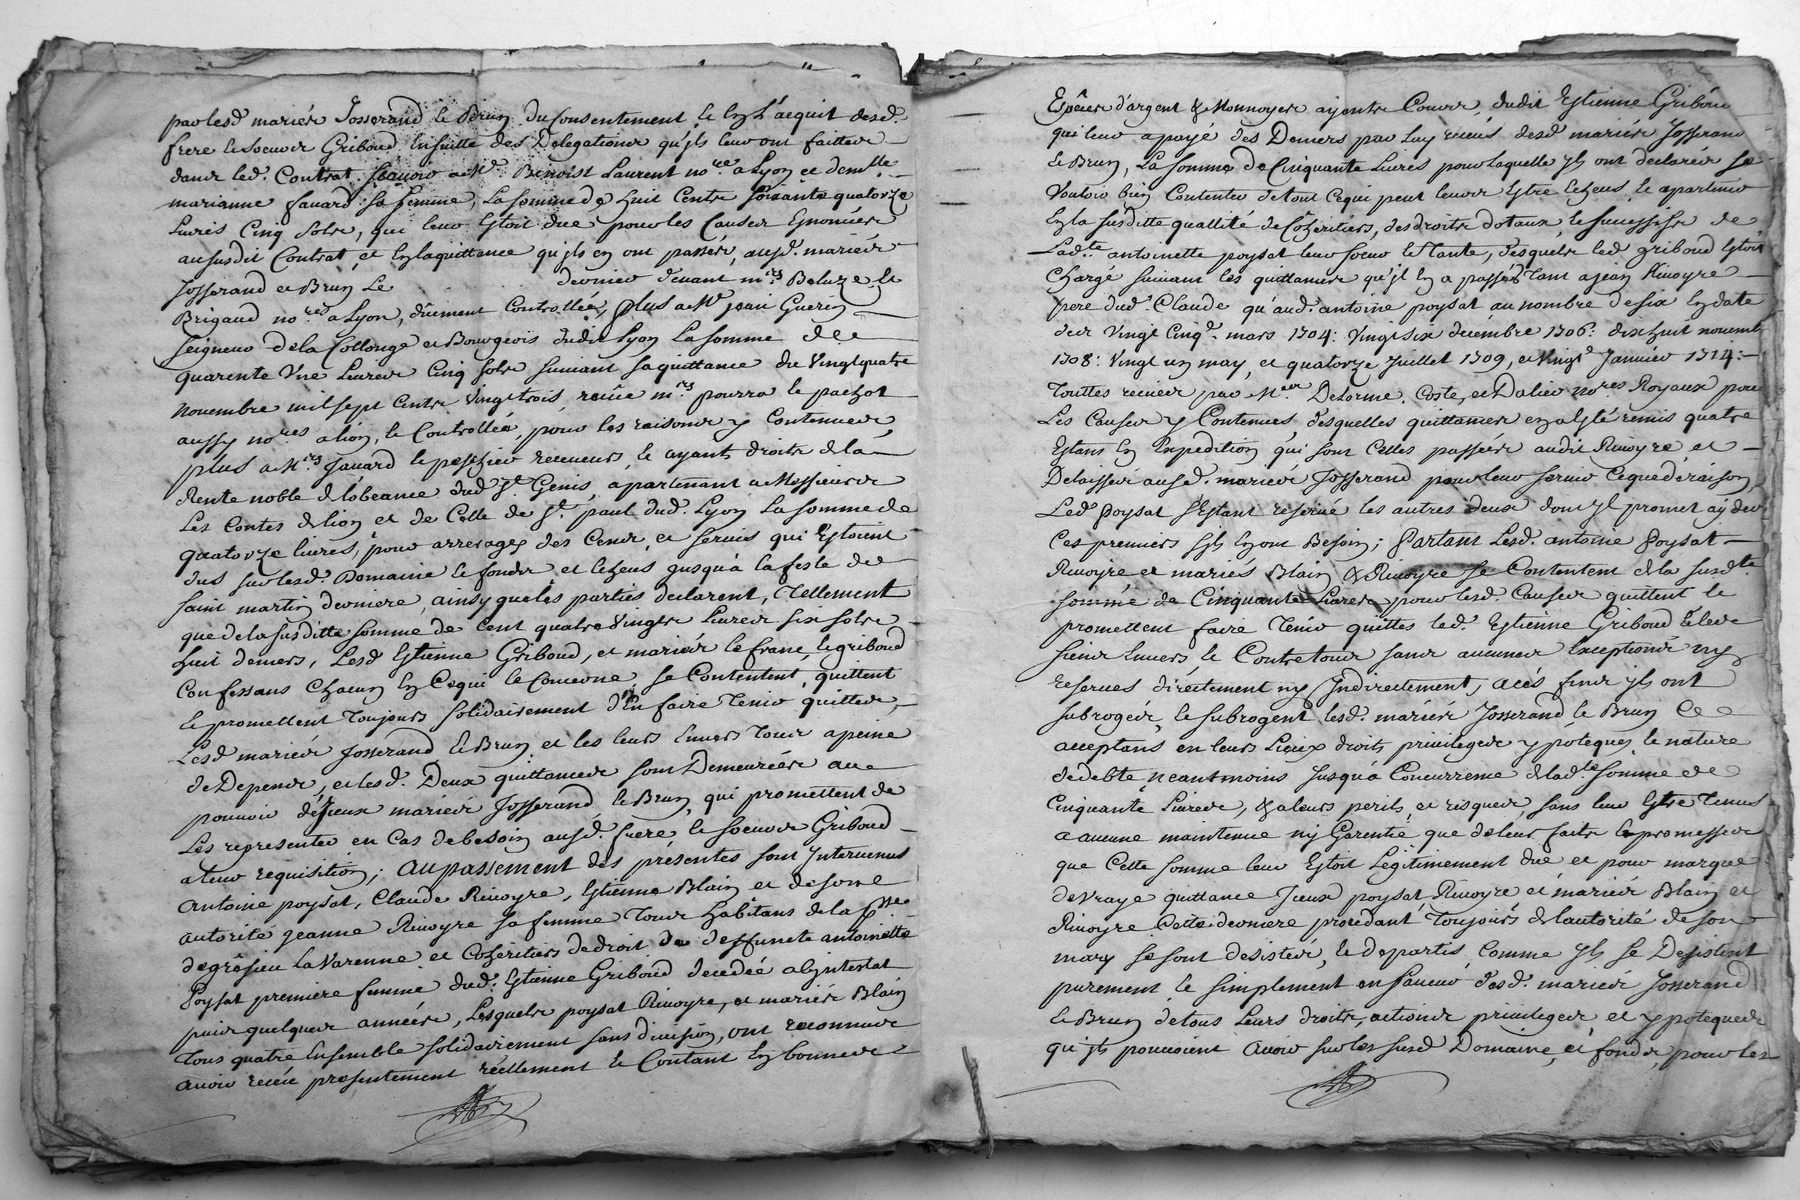 par lesd. mariés Josserand & Brun du consentement & en l'acquit desd.
frere & soeurs Griboud ensuitte des Delegations qu'ils leur ont faittes
dans led. Contrat. scavoir a Mr. Benoist Laurent nore. a Lyon et demlle.
marianne favard sa femme, La somme de huit Cents soixante quatorze
Livres Cinq sols, qui leur Estoit due pour les Causes Enoncées
au susdit Contrat, et en la quittance qu'ils en ont passée, ausd. mariés
Josserand et Brun Le dernier devant mres. Baluze &
Brigaud nores. a Lyon, düement Controllée, plus a Mr. jean Guerin
seigneur de la Collonge et Bourgeois dudit Lyon La somme de
quarente Une Livres Cinq sols suivant sa quittance du Vingtquatre
Novembre mil sept Cents Vingt trois, reçüe mres. pourra & pachot
aussy nores. a lion, & Controllée, pour les raisons y Contenues
plus a Mrs. favard & peschier receveurs, & ayants droits de la
Rente noble de lobeance dud. St. Genis, apartenant a Messieurs
Les Contes de lion et de Celle de St. paul dud. Lyon La somme de
quatorze livres, pour arrerages des Cens, et servis qui Estoient
dus sur lesd. Domaine & fonds et lieus jusqu'à la feste de
saint martin derniere, ainsy que les parties declarent, Tellement
que de la susditte somme de Cent quatre Vingts Livres six sols
huit deniers, Lesd. Estienne Griboud, et mariés le franc, & griboud
Confessans Chacun en Cequi le Concerne, se Contentent, quittent
& promettent Toujours solidairement d'en faire Tenir quittes,
Lesd. mariés Josserand & Brun et les leurs Envers Tous a peine
de Depens, et lesd. Deux quittances sont Demeurées au
pouvoir d'Jceux mariés Josserand & Brun, qui promettent de
Les representer en Cas de besoin ausd. frere & soeurs Griboud
a leur requisition; au passement des présentes sont Intervenus
Antoine poysat, Claude Rivoyre, Estienne Blain et de son
autorité jeanne Rivoyre sa femme Tous habitans de la psse.
de grésieu La Varenne et Cohéritiers de droit de deffuncte antoinette
Poysat premiere femme dud. Estienne Griboud decedée abintestat
puis quelques années, Lesquels poysat Rivoyre, et mariés Blain
Tous quatre Ensemble solidairement sans division, ont reconnu
avoir receu presentement réellement & Contant en bonnes
Espéces d'argent & Monnoyes ayants Cours, dudit Estienne Griboud
qui leur a payé des Deniers par Luy receus desd. mariés Josserand
& Brun, La somme de Cinquante Livres pour laquelle ils ont declarés se
Vouloir bien Contenter de tout Cequi peut leuvoir Estre Echeus, & apartenir
En la susditte quallité de Cohéritiers, des droits dotaux, & successifs de
Ladte. antoinette poysat leur soeur & Tante, desquels led. griboud Estoit
Chargé suivant les quittances qu'il en a passées Tant a jean Rivoyre
pere dud. Claude qu'aud. antoine poysat au nombre de six En date
des Vingt Cinqe. mars 1704: Vingt six decembre 1706: dixhuit novemb.
1708: Vingt un may, et quatorze Juillet 1709, et Vingte. Janvier 1714:
Touttes receues par Mes. Delorme, Coste, et Dalier nores. Royaux pour
Les Causes y Contenues, desquelles quittances en a Esté remis quatre
Estans En Expedition, qui sont Celles passées audit Rivoyre et
Delaissées ausd. mariés Josserand pour leur servir Ceque de raison,
Led. poysat s'Estant reservé les autres deux dont il promet ayder
Ces premiers s'ils En ont Besoin; Partant Lesd. antoine Poysat
Rivoyre et mariés Blain & Rivoyre se Contentent de la susdte.
somme de Cinquante Livres pour lesd. Causes quittent &
promettent faire Tenir quittes led. Estienne Griboud & les
siens Envers & Contre tous sans aucunes Exceptions ny
reserves directement ny Indirectement, a ces fins ils ont
subrogés, & subrogent lesd. mariés Josserand & Brun Ce
acceptans en leurs Lieux droits privileges ypoteques & nature
de debte neantmoins jusqu'à Concurrence de lade. somme de
Cinquante Livres, & a leurs perils, et risques, sans leur Estre Tenus
a aucune maintenue ny Garentie, que de leurs faits & promesses
que Cette somme leur Estoit Légitimement due et pour marque
de Vraye quittance Jceux poysat, Rivoyre et mariés Blain et
Rivoyre Cette derniere procedant Toujours de l'autorité de son
mary se sont desistés, & departis, Comme ils se Desistent
purement & simplement en faveur desd. mariés Josserand
& Brun de tous Leurs droits, actions privileges et ypoteques
qu'ils pouvoient avoir sur les susd. Domaine, et fonds, pour les